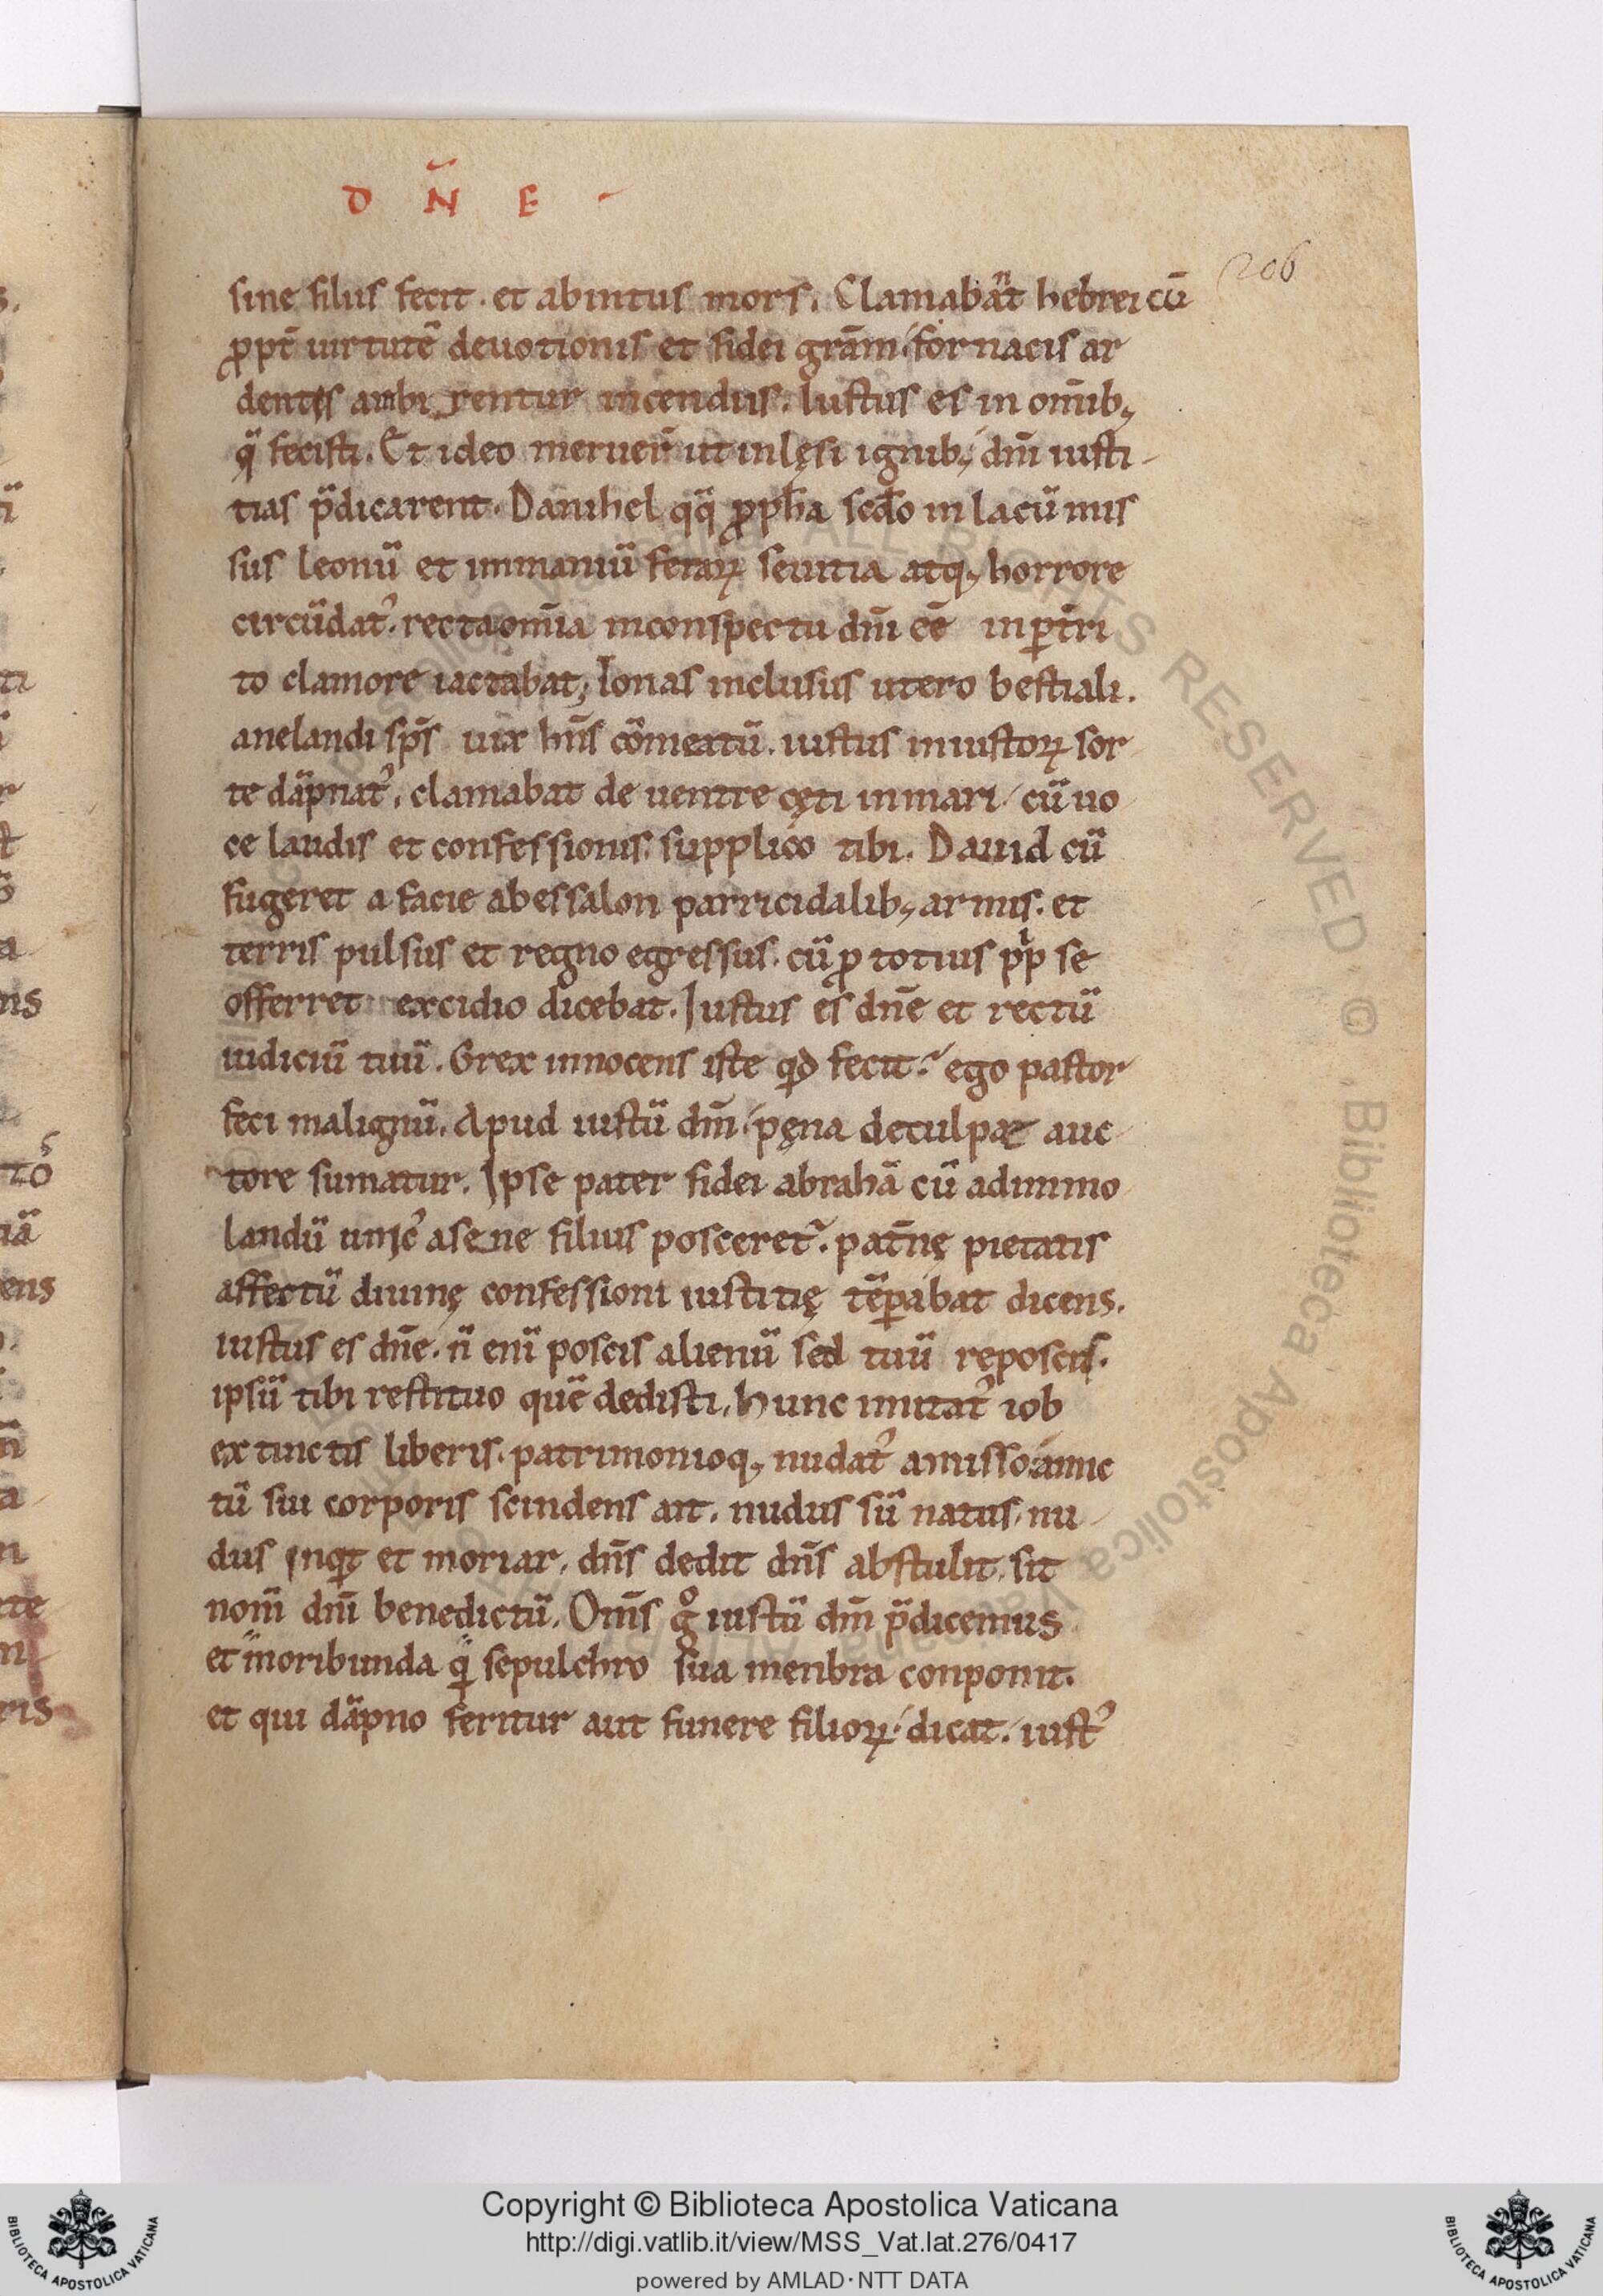 D N̄ E
206
sine filus fecit · et abintus mors. Clamabāt hebrei cū
ꝓpt̄ uirtutē deuotionis et fidei grām fornacis ar
dentes ambirentur incendiis. Iustus es in om̄ib;
q̄ fecisti. Et ideo meruer̄ ut inlęsi ignib; dn̄i iusti
tias p̄dicarent. Danihel qq̄ ꝓph̄a scd̄o in lacū mis
sus leonū et immaniū feraꝝ seuitia atq; horrore
circūdatꝰ. recta om̄ia inconspectu dn̄i eē inp̄tri
to clamore iactabat; Ionas inclusus utero bestiali.
anelandi sp̄s uix hn̄s cōmeatū. iustus iniustoꝝ sor
te dāpnatꝰ. clamabat de uentre cęti in mari cū uo
ce laudis et confessionis supplico tibi. Dauid cū
fugeret a facie abessalon parricidalib; armis. et
terris pulsus et regno egressus. cū ꝓ totius pp̄li se
offerret excidio dicebat. Iustus es dn̄e et rectū
iudiciū tuū. Grex innocens iste qd̄ fecit? ego pastor
feci malignū. Apud iustū dn̄m pęna deculpae auc
tore sumatur. Ipse pater fidei abrahā cū adimmo
landū unicꝰ asene filius posceret̄. pat̄nę pietatis
affectū diuinę confessioni iustitię tēꝑabat dicens.
iustus es dn̄e. n̄ eni̅ poscis alienū sed tuū reposcis.
ipsū tibi restituo quē dedisti. Hunc imitatꝰ iob
extinctis liberis. patrimonioq; nudatꝰ amisso. amic
tū sui corporis scindens ait. nudus sū natus. nu
dus inqt et moriar. dn̄s dedit dn̄s abstulit. sit
nom̄ dn̄i benedictū. Om̄s gͦ iustū dn̄m p̄dicemus
et moribunda q̄ sepulchro sua menbra conponit.
et qui dāpno feritur aut funere filioꝝ dicat. iustꝰ
Copyright © Biblioteca Apostolica Vaticana
http://digi.vatlib.it/view/MSS_Vat.lat.276/0417
powered by AMLAD·NTT DATA